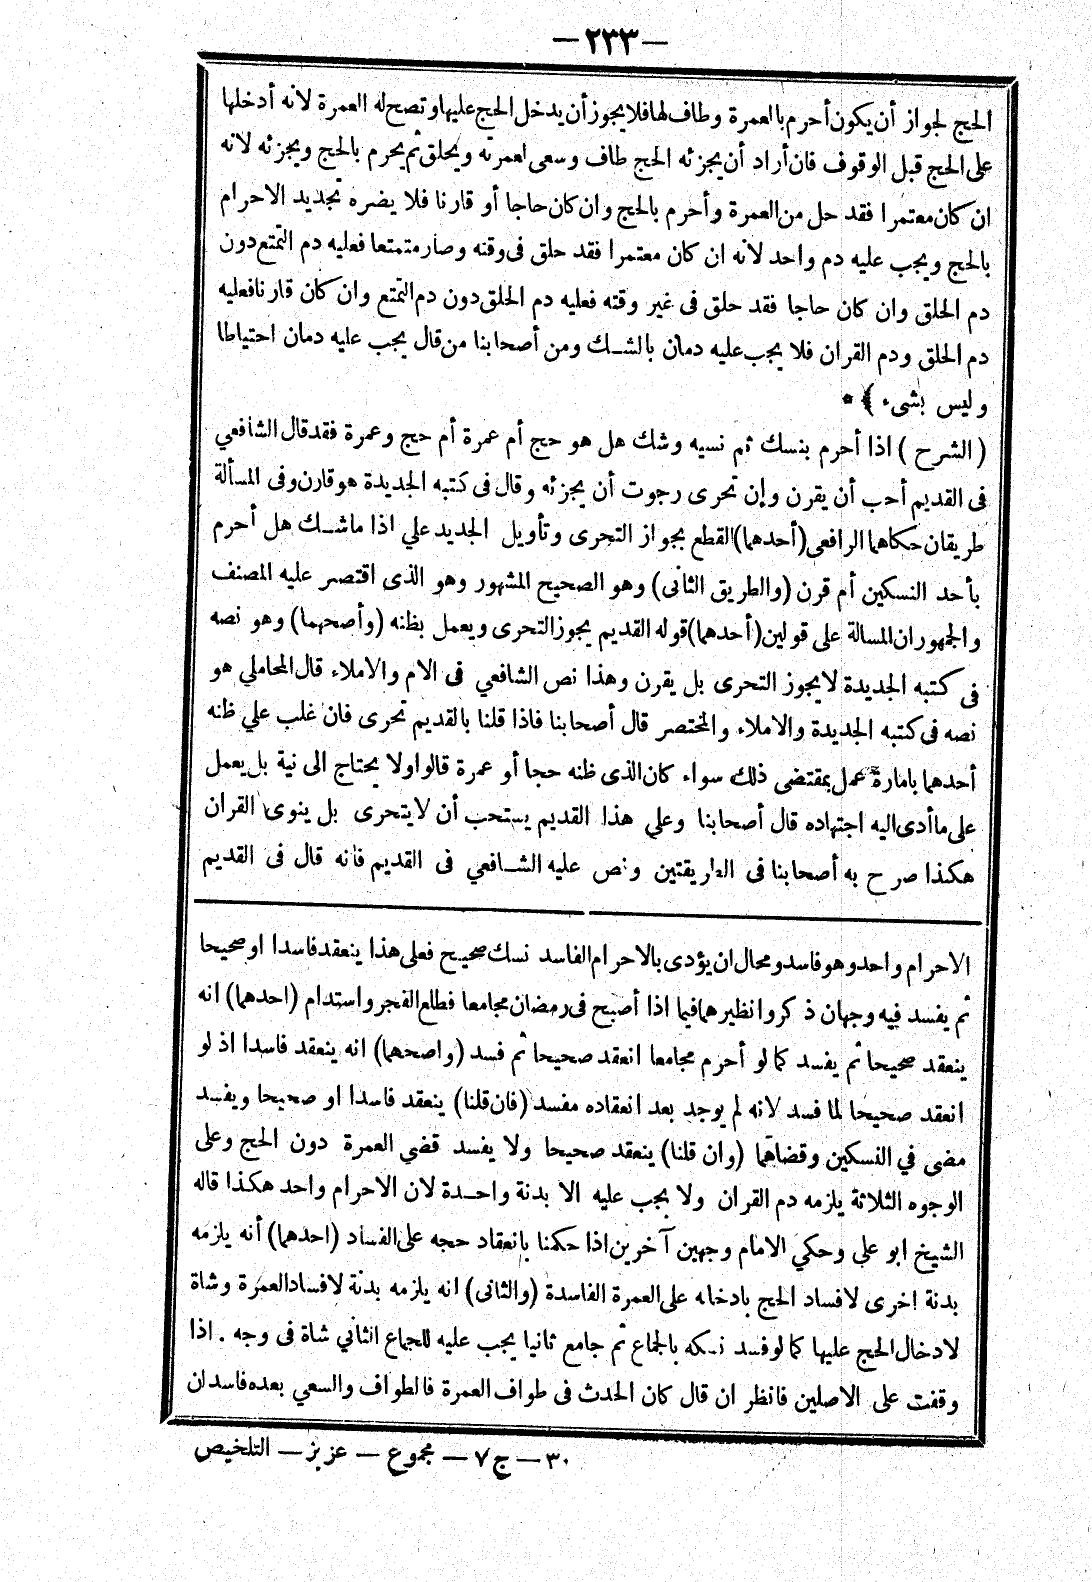 — ٢٣٣ —
الحج لجواز أن يكون أحرم بالعمرة وطاف لها فلا يجوز أن يدخل الحج عليها وتصح له العمرة لانه أدخلها
على الحج قبل الوقوف فان أراد أن يجزئه الحج طاف وسعى لعمرته ويحلق ثم يحرم بالحج ويجزئه لانه
ان كان معتمرا فقد حل من العمرة وأحرم بالحج وان كان حاجا أو قارنا فلا يضره تجديد الاحرام
بالحج ويجب عليه دم واحد لانه ان كان معتمرا فقد حلق فى وقته وصار متمتعا فعليه دم التمتع دون
دم الحلق وان كان حاجا فقد حلق فى غير وقته فعليه دم الحلق دون دم التمتع وان كان قارنا فعليه
دم الحلق ودم القران فلا يجب عليه دمان بالشك ومن أصحابنا من قال يجب عليه دمان احتياطا
وليس بشىء ﴾ *
( الشرح ) اذا أحرم بنسك ثم نسيه وشك هل هو حج أم عمرة أم حج وعمرة فقد قال الشافعي
فى القديم أحب أن يقرن وإن تحرى رجوت أن يجزئه وقال فى كتبه الجديدة هو قارن وفى المسألة
طريقان حكاهما الرافعى (أحدهما) القطع بجواز التحرى وتأويل الجديد علي اذا ما شك هل أحرم
بأحد النسكين أم قرن (والطريق الثانى) وهو الصحيح المشهور وهو الذى اقتصر عليه المصنف
والجمهور ان المسالة على قولين (أحدهما) قوله القديم يجوز التحرى ويعمل بظنه (وأصحهما) وهو نصه
فى كتبه الجديدة لا يجوز التحرى بل يقرن وهذا نص الشافعي فى الام والاملاء قال المحاملي هو
نصه فى كتبه الجديدة والاملاء والمختصر قال أصحابنا فاذا قلنا بالقديم تحرى فان غلب علي ظنه
أحدهما بامارة عمل بمقتضى ذلك سواء كان الذى ظنه حجا أو عمرة قالوا ولا يحتاج الى نية بل يعمل
على ما أدى اليه اجتهاده قال أصحابنا وعلي هذا القديم يستحب أن لا يتحرى بل ينوى القران
هكذا صرح به أصحابنا فى الطريقتين ونص عليه الشافعي فى القديم فانه قال فى القديم
الاحرام واحد وهو فاسد ومحال ان يؤدى بالاحرام الفاسد نسك صحيح فعلى هذا ينعقد فاسدا او صحيحا
ثم يفسد فيه وجهان ذكروا نظيرهما فيما اذا أصبح فى رمضان مجامعا فطلع الفجر واستدام (احدهما) انه
ينعقد صحيحا ثم يفسد كما لو أحرم مجامعا انعقد صحيحا ثم فسد (واصحهما) انه ينعقد فاسدا اذ لو
انعقد صحيحا لما فسد لانه لم يوجد بعد انعقاده مفسد (فان قلنا) ينعقد فاسدا او صحيحا ويفسد
مضى في النسكين وقضاهما (وان قلنا) ينعقد صحيحا ولا يفسد قضي العمرة دون الحج وعلى
الوجوه الثلاثة يلزمه دم القران ولا يجب عليه الا بدنة واحدة لان الاحرام واحد هكذا قاله
الشيخ ابو علي وحكي الامام وجهين آخرين اذا حكمنا بانعقاد حجه على الفساد (احدهما) أنه يلزمه
بدنة اخرى لافساد الحج بادخاله على العمرة الفاسدة (والثانى) انه يلزمه بدنة لافساد العمرة وشاة
لادخال الحج عليها كما لو فسد نسكه بالجماع ثم جامع ثانيا يجب عليه للجماع الثاني شاة فى وجه . اذا
وقفت على الاصلين فانظر ان قال كان الحدث فى طواف العمرة فالطواف والسعي بعده فاسدان
٣٠ — ج ٧ — مجموع — عزيز — التلخيص